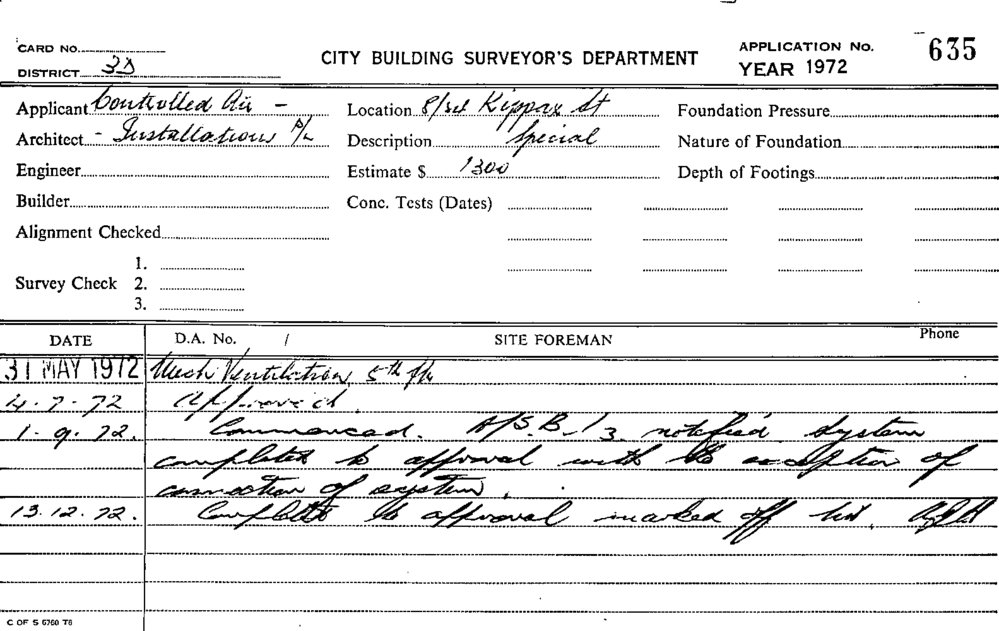 CARD NO.
CITY BUILDING SURVEYOR'S DEPARTMENT
APPLICATION No. 635
DISTRICT 3D
YEAR 1972
Applicant Controlled Air -
Location 8/ Kippax St
Foundation Pressure
Architect - Installations P/L
Description Special
Nature of Foundation
Engineer
Estimate $ 1300
Depth of Footings
Builder
Conc. Tests (Dates)
Alignment Checked
1.
Survey Check 2.
3.
DATE D.A. No. / SITE FOREMAN Phone
31 MAY 1972 Mech Ventilation, 5th flr
4.7.72 Approved.
1.9.72. Commenced. notified system
completed to approval with the exception of
connection of system.
13.12.72. Completed to approval marked off list.
C OF S 6760 T8